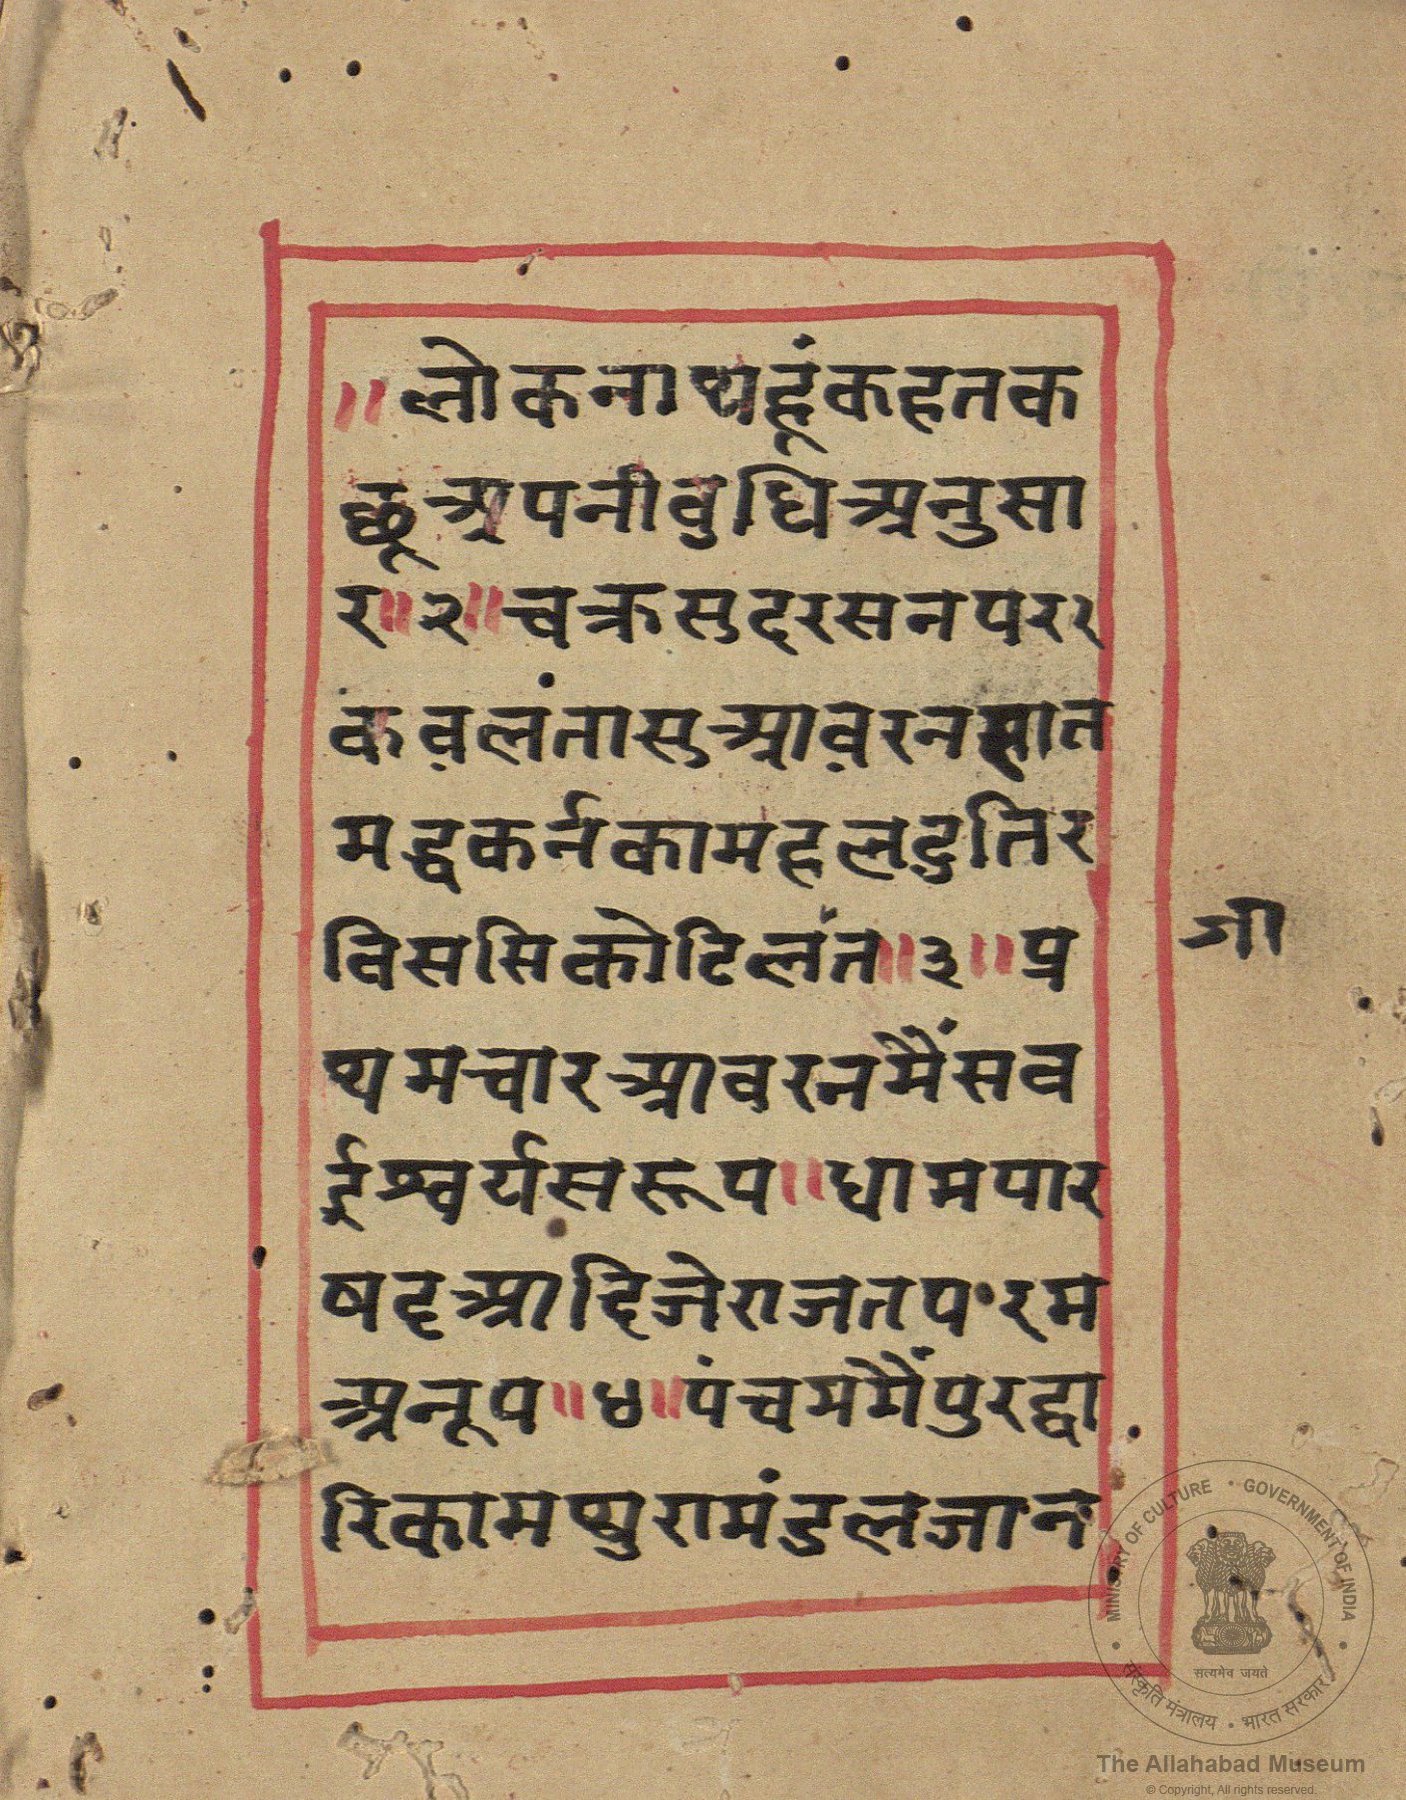 ॥ लोकनाथहूंकहतक
छूअपनीवुधिअनुसा
र॥२॥चक्रसुदरसनपरर
कंव़लंतासुआव़रनसात
मद्धकर्नकामहलदुतिर
विससिकोटिलंत॥३॥प्र
थमचारआवरनमैंसव
ईश्वर्यसरूप॥धामपार
षदआदिजेराजतपरम
अनूप॥४॥पंचममैंपुरद्वा
रिकामथुरामंडलजान
जा
MINISTRY OF CULTURE • GOVERNMENT OF INDIA
सत्यमेव जयते
संस्कृति मंत्रालय • भारत सरकार
The Allahabad Museum
© Copyright, All rights reserved.